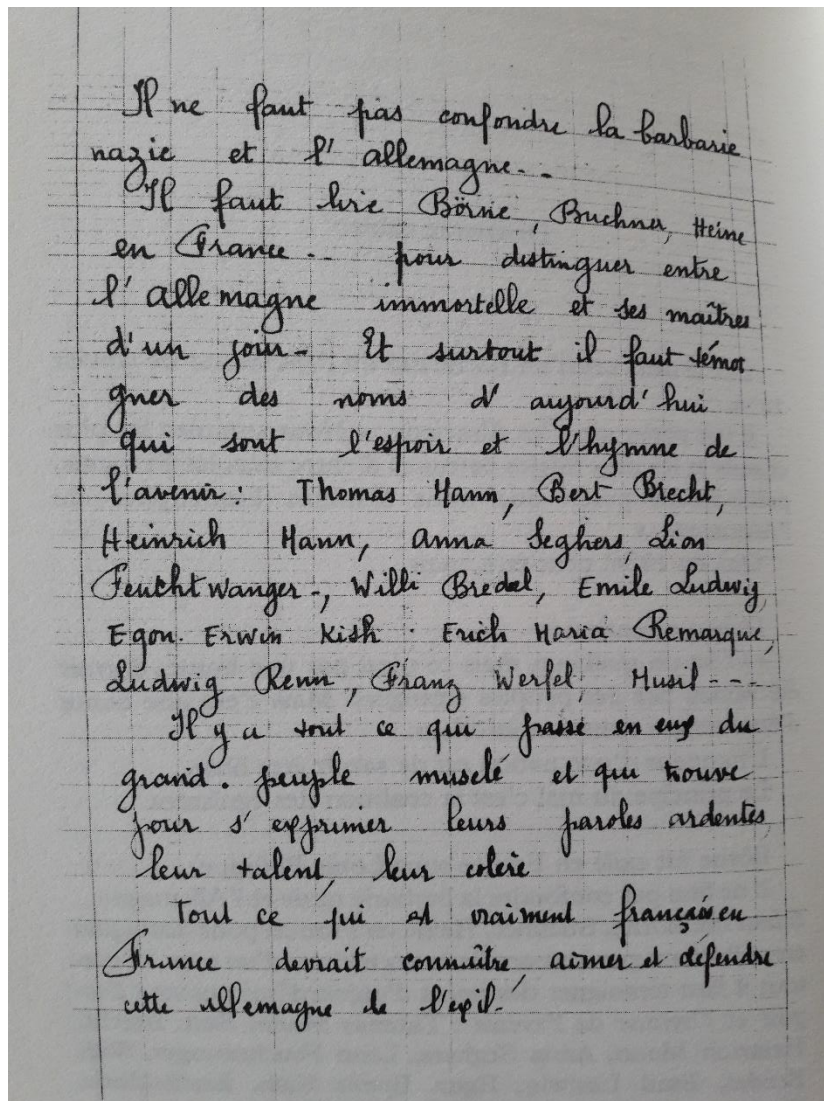 Il ne faut pas confondre la barbarie
nazie et l'allemagne...
Il faut lire Börne, Buchner, Heine
en France... pour distinguer entre
l'allemagne immortelle et ses maîtres
d'un jour - Et surtout il faut témoi
gner des noms d'aujourd'hui
qui sont l'espoir et l'hymne de
l'avenir : Thomas Mann, Bert Brecht,
Heinrich Mann, Anna Seghers, Lion
Feuchtwanger -, Willi Bredel, Emile Ludwig,
Egon. Erwin Kish. Erich Maria Remarque,
Ludwig Renn, Franz Werfel, Musil ---
Il y a tout ce qui passe en eux du
grand. peuple muselé et qui trouve
pour s'exprimer leurs paroles ardentes,
leur talent, leur colère
Tout ce qui est vraiment français en
France devrait connaître, aimer et défendre
cette allemagne de l'exil.